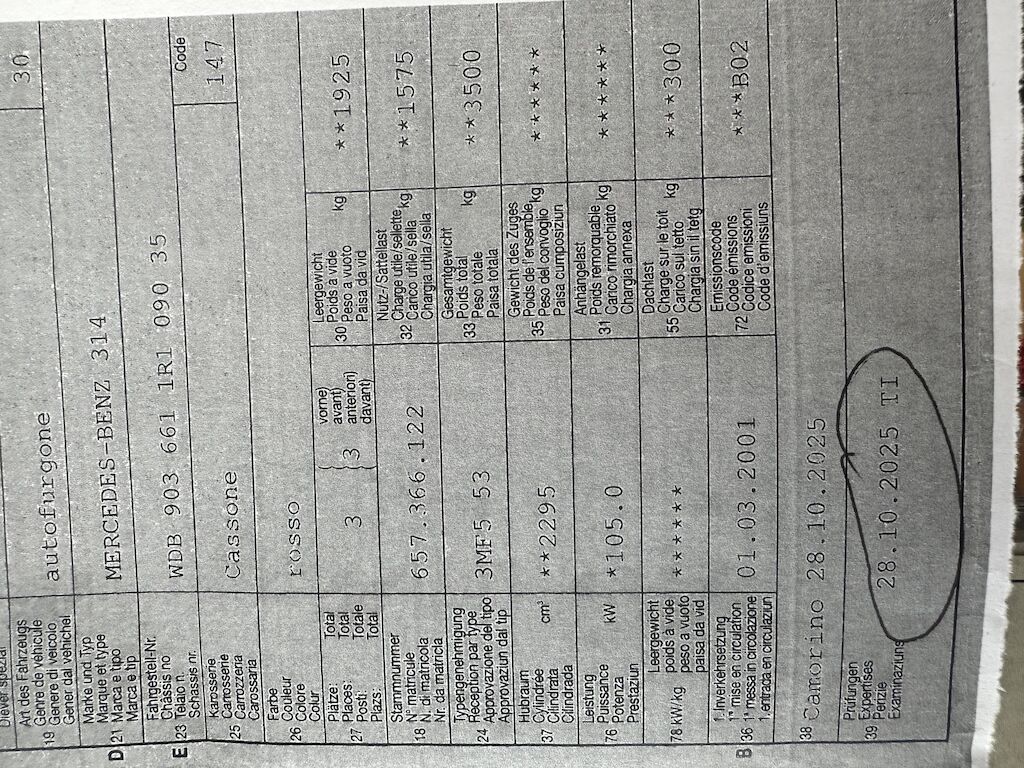 30
Art des Fahrzeugs
Genre de véhicule
Genere di veicolo
Gener dal vehichel
19 autofurgone
Marke und Typ
Marque et type
D 21 Marca e tipo
Marca e tip
MERCEDES-BENZ 314
Fahrgestell-Nr.
Châssis no
E 23 Telaio n.
Schassis nr.
WDB 903 661 1R1 090 35
Code
147
Karosserie
Carrosserie
25 Carrozzeria
Carossaria
Cassone
Farbe
Couleur
26 Colore
Colur
rosso
Plätze: Total
Places: Total
27 Posti: Totale
Plazs: Total
3
3
vorne)
avant)
anteriori)
davant)
Leergewicht
Poids à vide
30 Peso a vuoto kg
Paisa da vid
**1925
Stammnummer
N° matricule
18 N. di matricola
Nr. da matricla
657.366.122
Nutz-/Sattellast
Charge utile/sellette
32 Carico utile/sella kg
Chargia utila/sella
**1575
Typengenehmigung
Réception par type
24 Approvazione del tipo
Approvaziun dal tip
3MF5 53
Gesamtgewicht
Poids total
33 Peso totale kg
Paisa totala
**3500
Hubraum
Cylindrée
37 Cilindrata cm³
Cilindrada
**2295
Gewicht des Zuges
Poids de l'ensemble
35 Peso del convoglio kg
Paisa cumposiziun
******
Leistung
Puissance
76 Potenza kW
Prestaziun
*105.0
Anhängelast
Poids remorquable
31 Carico rimorchiato kg
Chargia annexa
******
Leergewicht
poids à vide
78 kW/kg peso a vuoto
paisa da vid
*******
Dachlast
Charge sur le toit
55 Carico sul tetto kg
Chargia sin il tetg
***300
1. Inverkehrsetzung
1re mise en circulation
B 36 1a messa in circolazione
1. entrada en circulaziun
01.03.2001
Emissionscode
Code émissions
72 Codice emissioni
Code d'emissiuns
***B02
38 Camorino 28.10.2025
Prüfungen
Expertises
39 Perizie
Examinaziuns
28.10.2025 TI